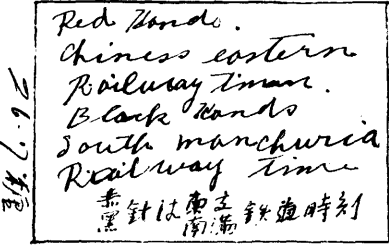 Red Hand.
Chiness eastern
Railway timan.
Black Hands
South manchuria
Railway time
赤黒針は東支南満鉄道時刻